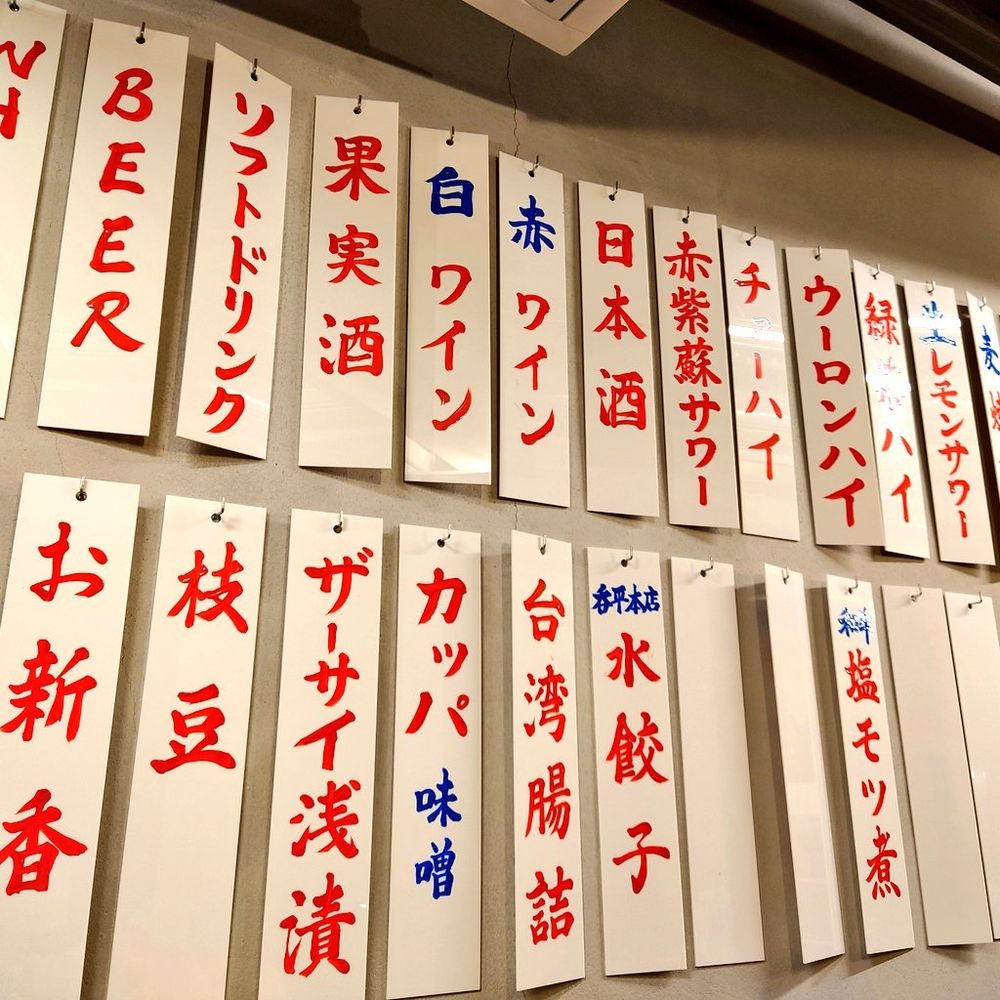 BEER
ソフトドリンク
果実酒
白ワイン
赤ワイン
日本酒
赤紫蘇サワー
チューハイ
ウーロンハイ
緑茶ハイ
レモンサワー
麦焼
お新香
枝豆
ザーサイ浅漬
カッパ味噌
台湾腸詰
呑平本店
水餃子
塩モツ煮